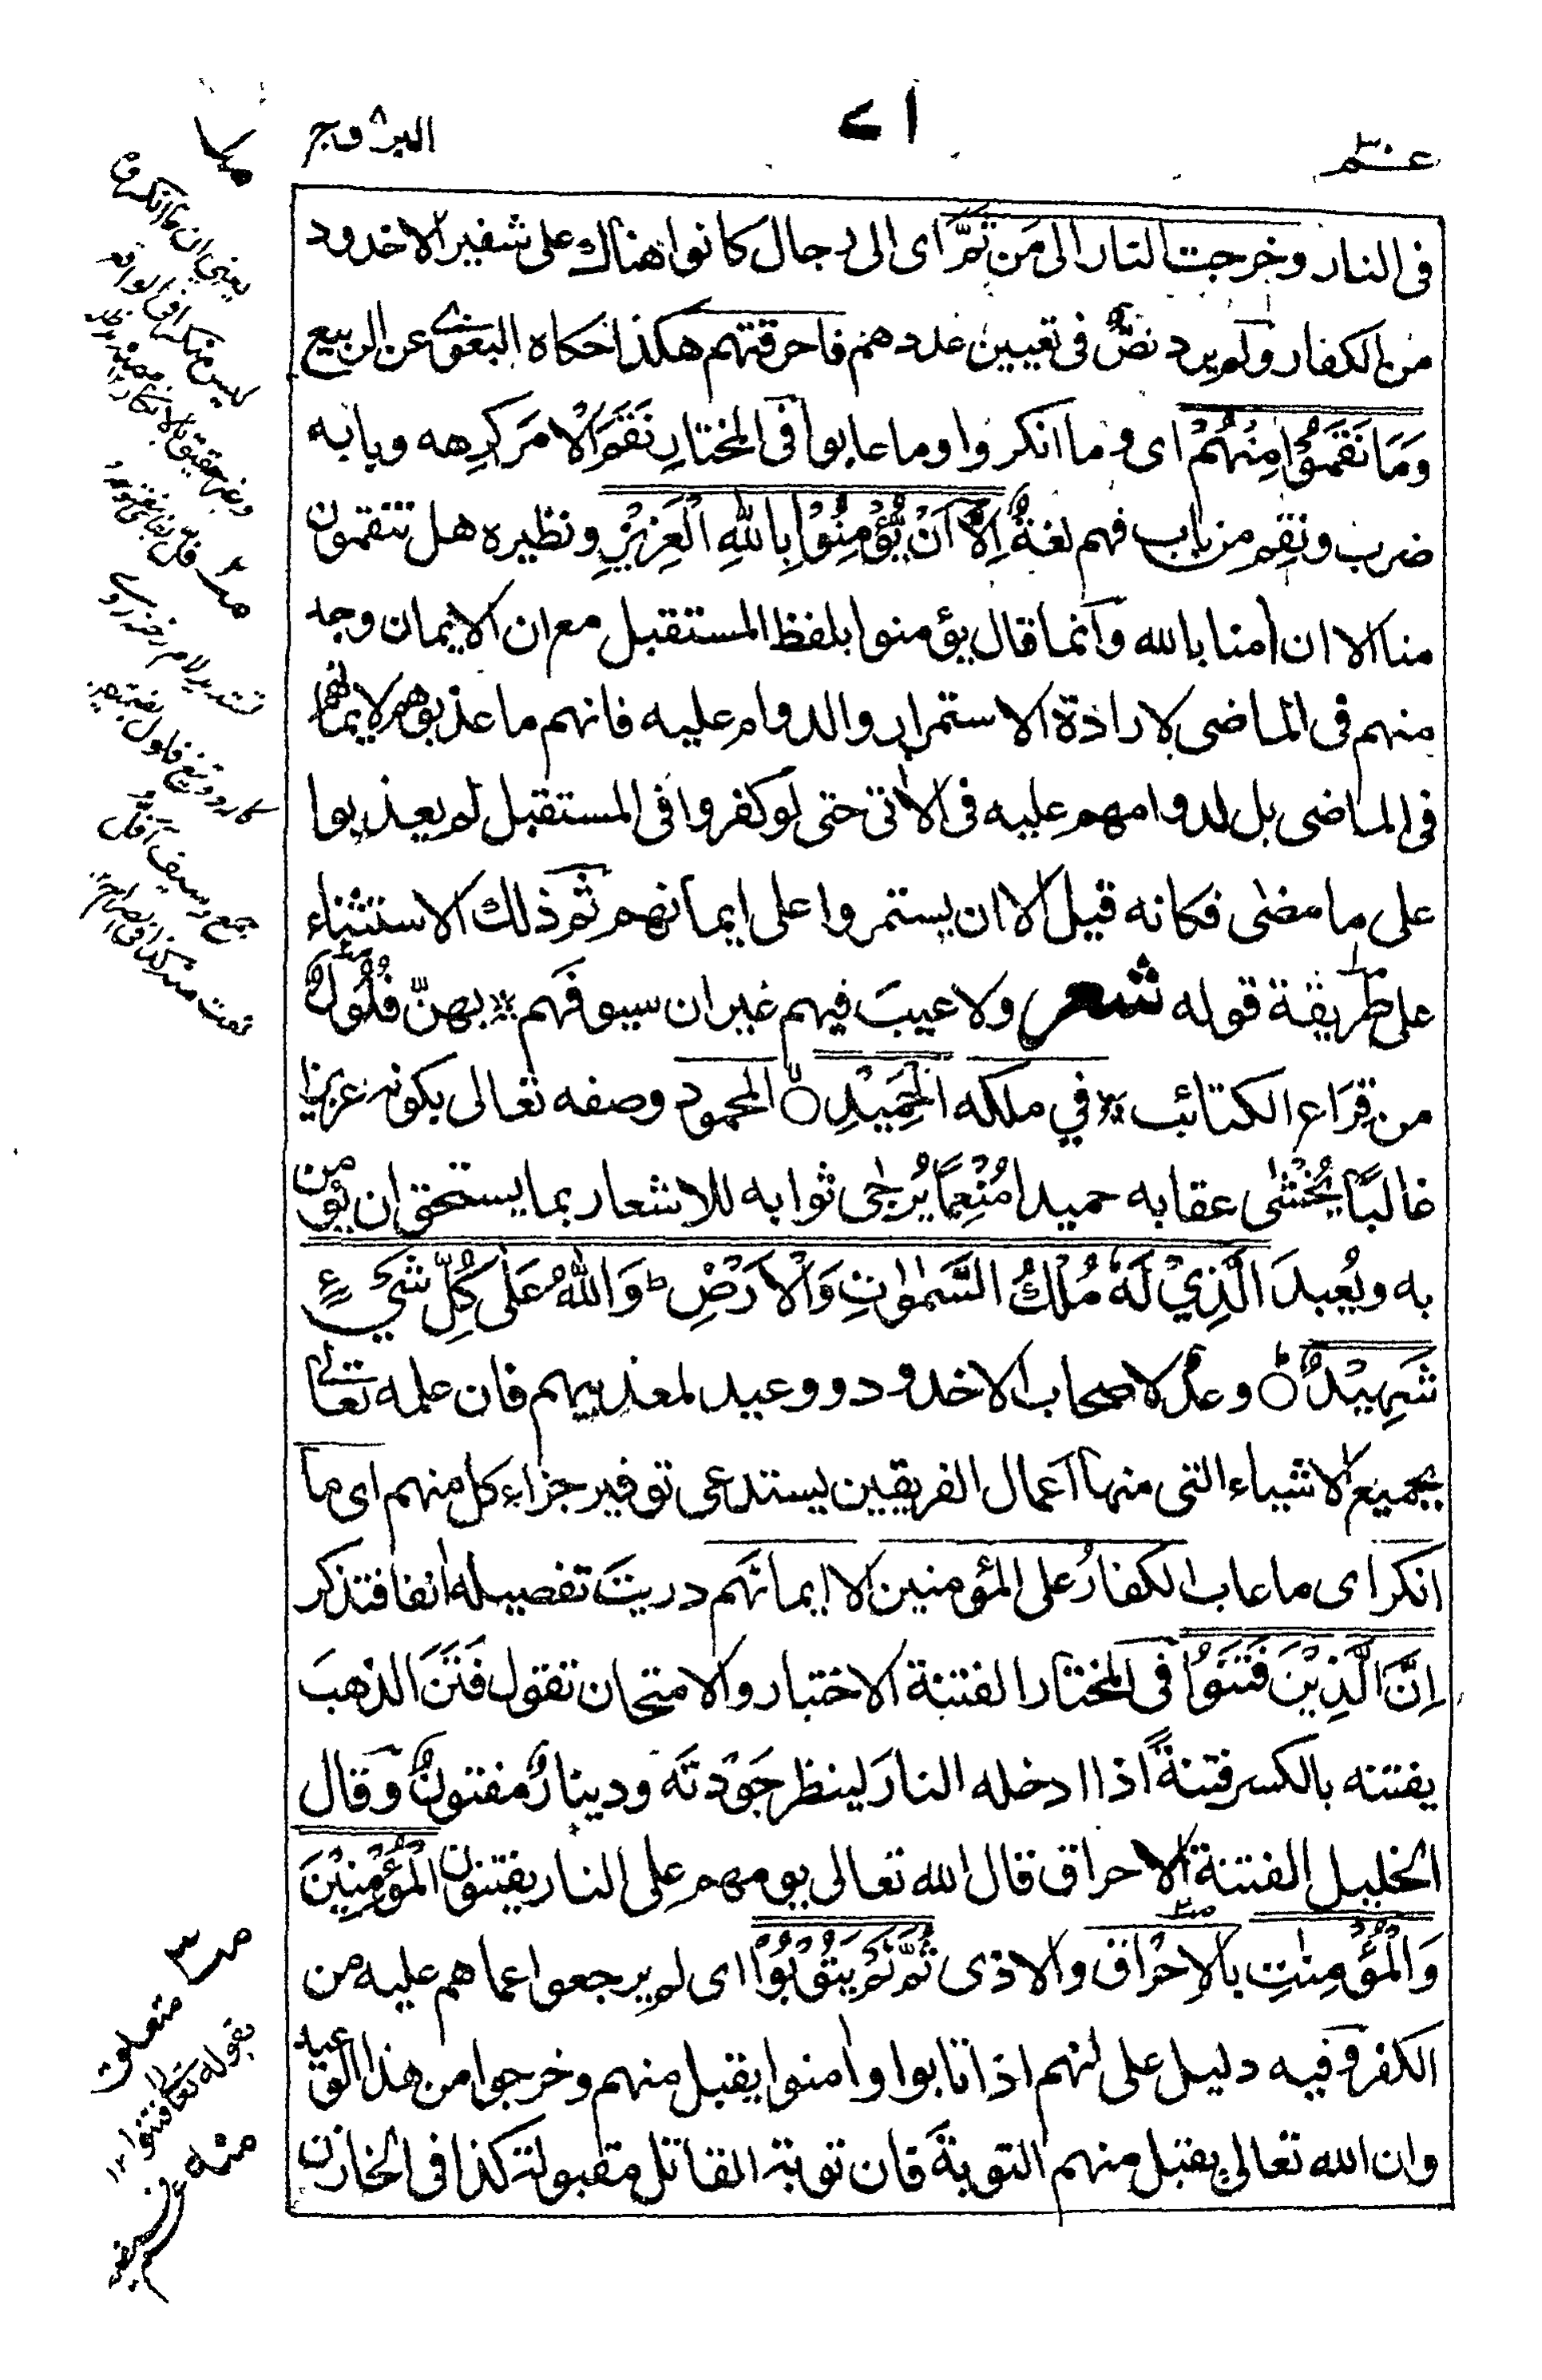 عـم
٧١
البروج
فی النار وخرجت النار الی مَن ثَمَّ ای الی رجال کانوا هناك علی شفیر الاخدود
من الکفار ولم یرد نصٌّ فی تعیین عددهم فاحرقتهم هکذا حکاه البغوی عن الربیع
وَمَا نَقَمُوْا مِنْهُمْ ای وما انکروا وما عابوا فی المختارِ نَقَمَ الْامرَ کرِهه وبابه
ضرب ونقِم من باب فهم لغةٌ اِلَّاۤ اَنْ یُّؤْمِنُوْا بِاللّٰهِ الْعَزِیْزِ ونظیره هل تنقمون
منا الا ان اٰمنا بالله وانما قال یؤمنوا بلفظ المستقبل مع ان الایمان وجد
منهم فی الماضی لارادة الاستمرار والدوام علیه فانهم ما عذبوهم لایمانهم
فی الماضی بل لدوامهم علیه فی الاٰتی حتی لو کفروا فی المستقبل لم یعذبوا
علی ما مضٰی فکانه قیل الا ان یستمروا علی ایمانهم ثم ذلك الاستثناء
علی طریقة قوله شعر ولا عیبَ فیهم غیر ان سیوفَهم ٭ بهنّ فُلُولٌ
من قِرَاعِ الکتائب ٭ في ملکه الْحَمِیْدِ۝ المحمود وصفه تعالی بکونه عزیزا
غالبًا یُخْشٰی عقابه حمیدا مُنْعِمًا یُرجٰی ثوابه للاشعار بما یستحق ان یؤمن
به ویُعبدَ الَّذِيْ لَهٗ مُلْكُ السَّمٰوٰتِ وَالْاَرْضِ ؕ وَاللّٰهُ عَلٰى كُلِّ شَيْءٍ
شَهِیْدٌ۝ؕ وعدٌ لاصحاب الاخدود ووعید لمعذبیهم فان علمه تعالی
بجمیع الاشیاء التی منها اعمال الفریقین یستدعی توفیر جزاء کل منهم ای ما
انکر ای ما عاب الکفارُ علی المؤمنین الا ایمانَهم دریتَ تفصیله اٰنفا فتذکر
اِنَّ الَّذِیْنَ فَتَنُوا فی المختار الفتنة الاختبار والامتحان تقول فَتَنَ الذهبَ
یفتنه بالکسر فتنةً اذا ادخله النارَ لینظر جَوْدتَه ودینارٌ مفتونٌ وقال
الخلیل الفتنة الاحراق قال الله تعالی یوم هم علی النار یفتنون الْمُؤْمِنِیْنَ
وَالْمُؤْمِنٰتِ بالاِحْرَاقِ والاذی ثُمَّ لَمْ یَتُوْبُوْا ای لم یرجعوا عما هم علیه من
الکفر وفیه دلیل علی انهم اذا تابوا واٰمنوا یقبل منهم وخرجوا من هذا الوعید
وان الله تعالی یقبل منهم التوبةَ فان توبة القاتل مقبولة کذا فی الخازن
متعلق
بقوله تعالی فتنوا ۱۲
منه